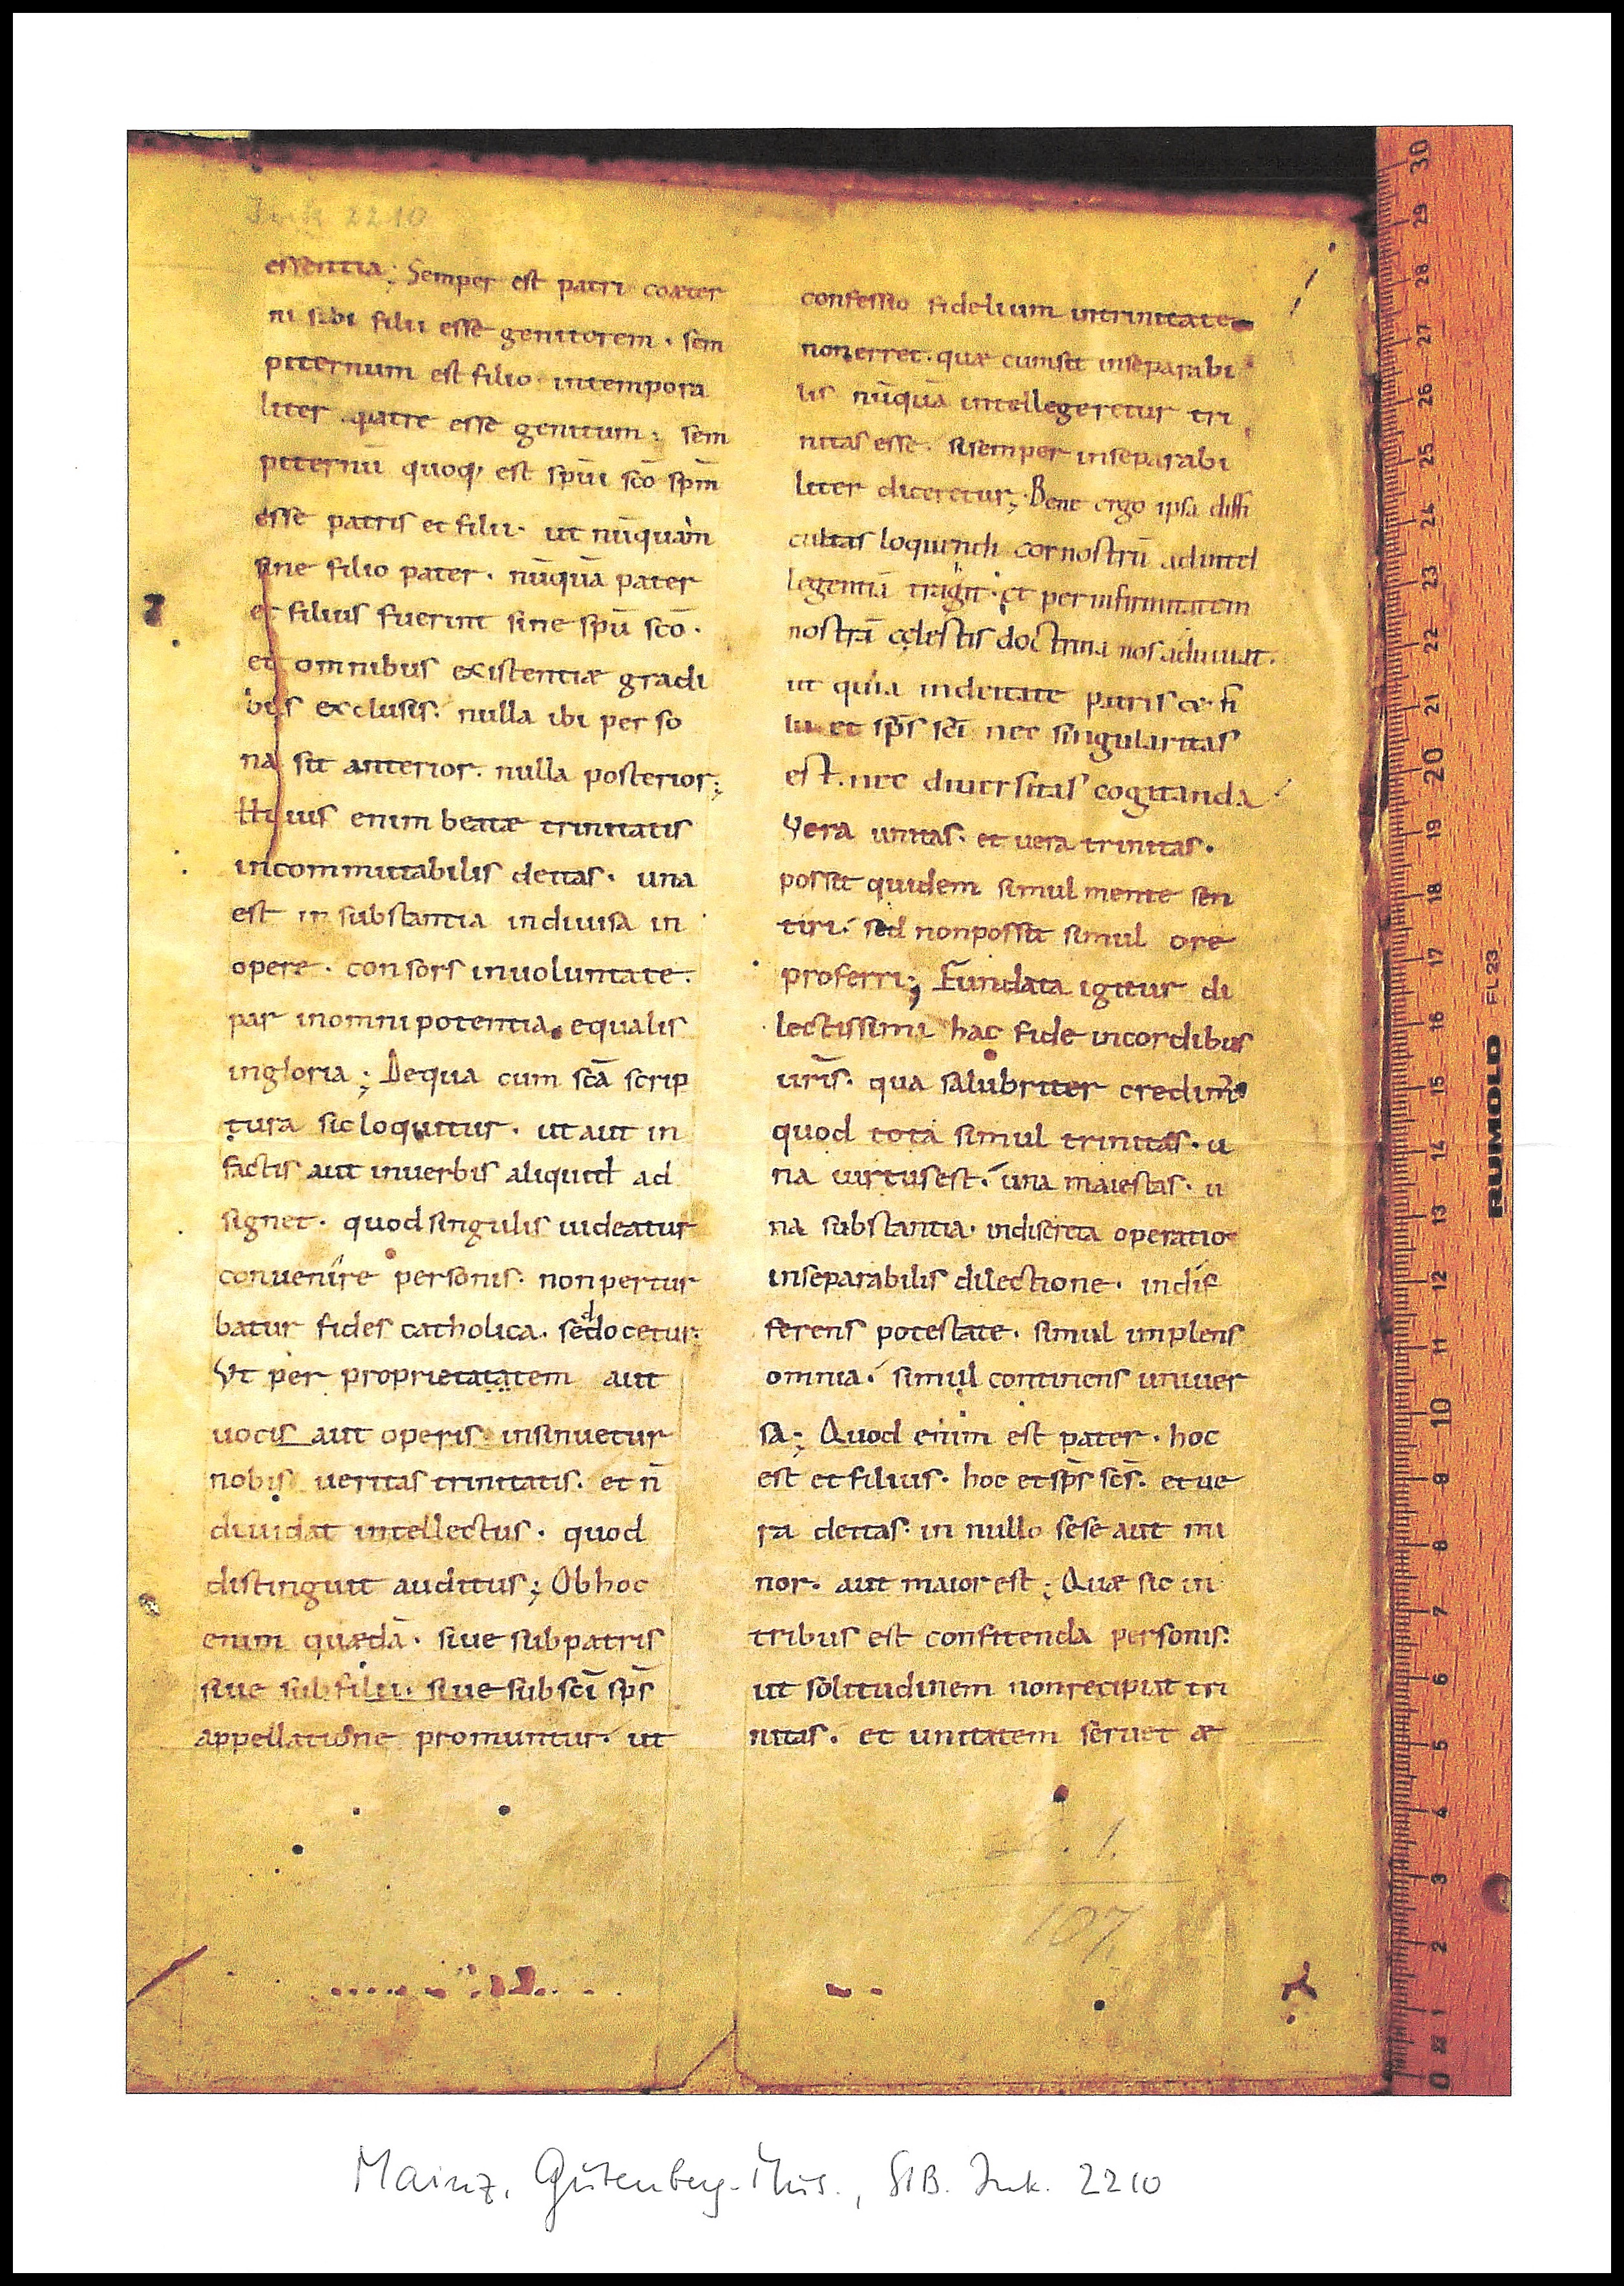 Ink 2210
essentia; Semper est patri coæter
ni sibi filii esse genitorem · sem
piternum est filio · intempora
liter apatre esse genitum; sem
piternū quoq; est spūi sc̄o sp̄m
esse patris et filii · ut nūquam
sine filio pater · nūquā pater
et filius fuerint sine spū sc̄o ·
et omnibus existentiæ gradi
bus exclusis · nulla ibi perso
na sit anterior · nulla posterior;
Huius enim beatæ trinitatis
incommutabilis deitas · una
est in substantia indiuisa in
opere · consors inuoluntate ·
par inomnipotentia · equalis
ingloria; Dequa cum sc̄a scrip
tura sic loquitur · ut aut in
factis aut inuerbis aliquid ad
signet · quod singulis uideatur
convenire personis · non pertur
batur fides catholica · sed docetur ·
Vt per proprietatatem aut
uocis aut operis insinuetur
nobis ueritas trinitatis · et n̄
diuidat intellectus · quod
distinguit auditus; Ob hoc
enim quædā · siue sub patris
siue sub filii · siue sub sc̄i sp̄s
appellatione promuntur · ut
confessio fidelium intrinitate
non erret · quæ cum sit inseparabi
lis nūquā intellegeretur tri
nitas esse · si semper inseparabi
liter diceretur; Bene ergo ipsa diffi
cultas loquendi cor nostrū ad intel
legentiā trahit · et per infirmitatem
nostrā cęlestis doctrina nos adiuuat ·
ut quia indeitate patris & fi
lii et sp̄s sc̄i nec singularitas
est · nec diuersitas cogitanda
Vera unitas · et uera trinitas ·
possit quidem simul mente sen
tiri · sed non possit simul ore
proferri; Fundata igitur di
lectissimi hac fide incordibus
ur̄is · qua salubriter credim᾽
quod tota simul trinitas · u
na uirtus est · una maiestas · u
na substantia · indiscreta operatio
inseparabilis dilectione · indif
ferens potestate · simul implens
omnia · simul continens uniuer
sa; Quod enim est pater · hoc
est et filius · hoc et sp̄s sc̄s · et ue
ra deitas · in nullo sese aut mi
nor · aut maior est; Quæ sic in
tribus est confitenda personis ·
ut solitudinem non recipiat tri
nitas · et unitatem seruet æ
107
Mainz, Gutenberg-Mus., StB. Ink. 2210
0 1 2 3 4 5 6 7 8 9 10 11 12 13 14 15 16 17 18 19 20 21 22 23 24 25 26 27 28 29 30
RUMOLD FL 23